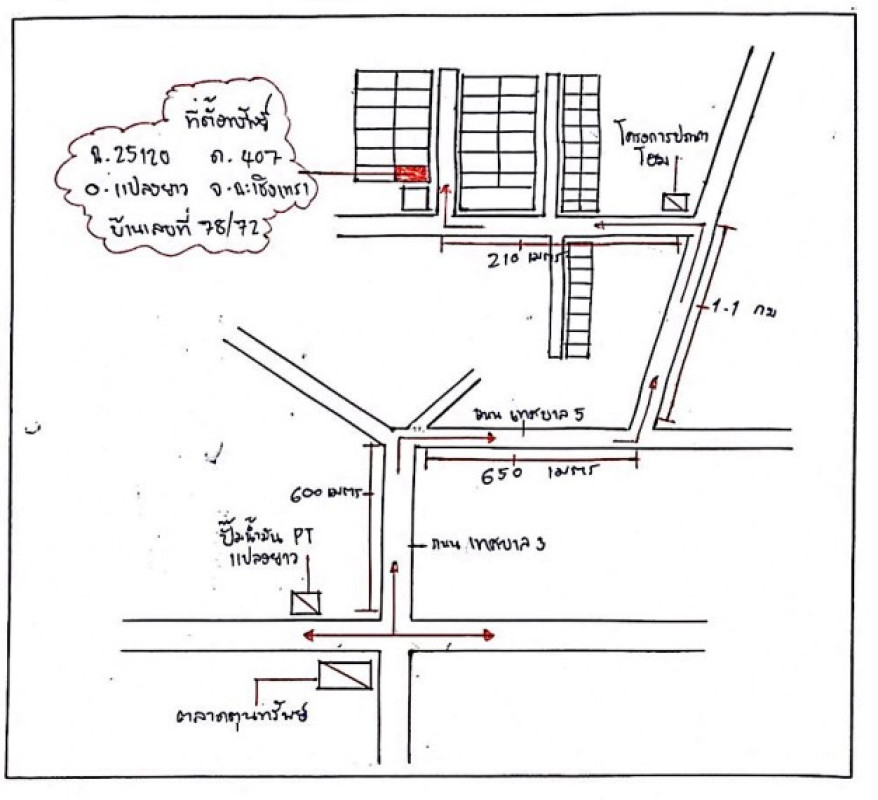 ที่ตั้งทรัพย์
ฉ. 25120 ด. 407
อ. แปลงยาว จ. ฉะเชิงเทรา
บ้านเลขที่ 78/72
โครงการปภาดา
โฮม
210 เมตร
1.1 กม
ถนน เทศบาล 5
650 เมตร
600 เมตร
ปั๊มน้ำมัน PT
แปลงยาว
ถนน เทศบาล 3
ตลาดตุนทรัพย์